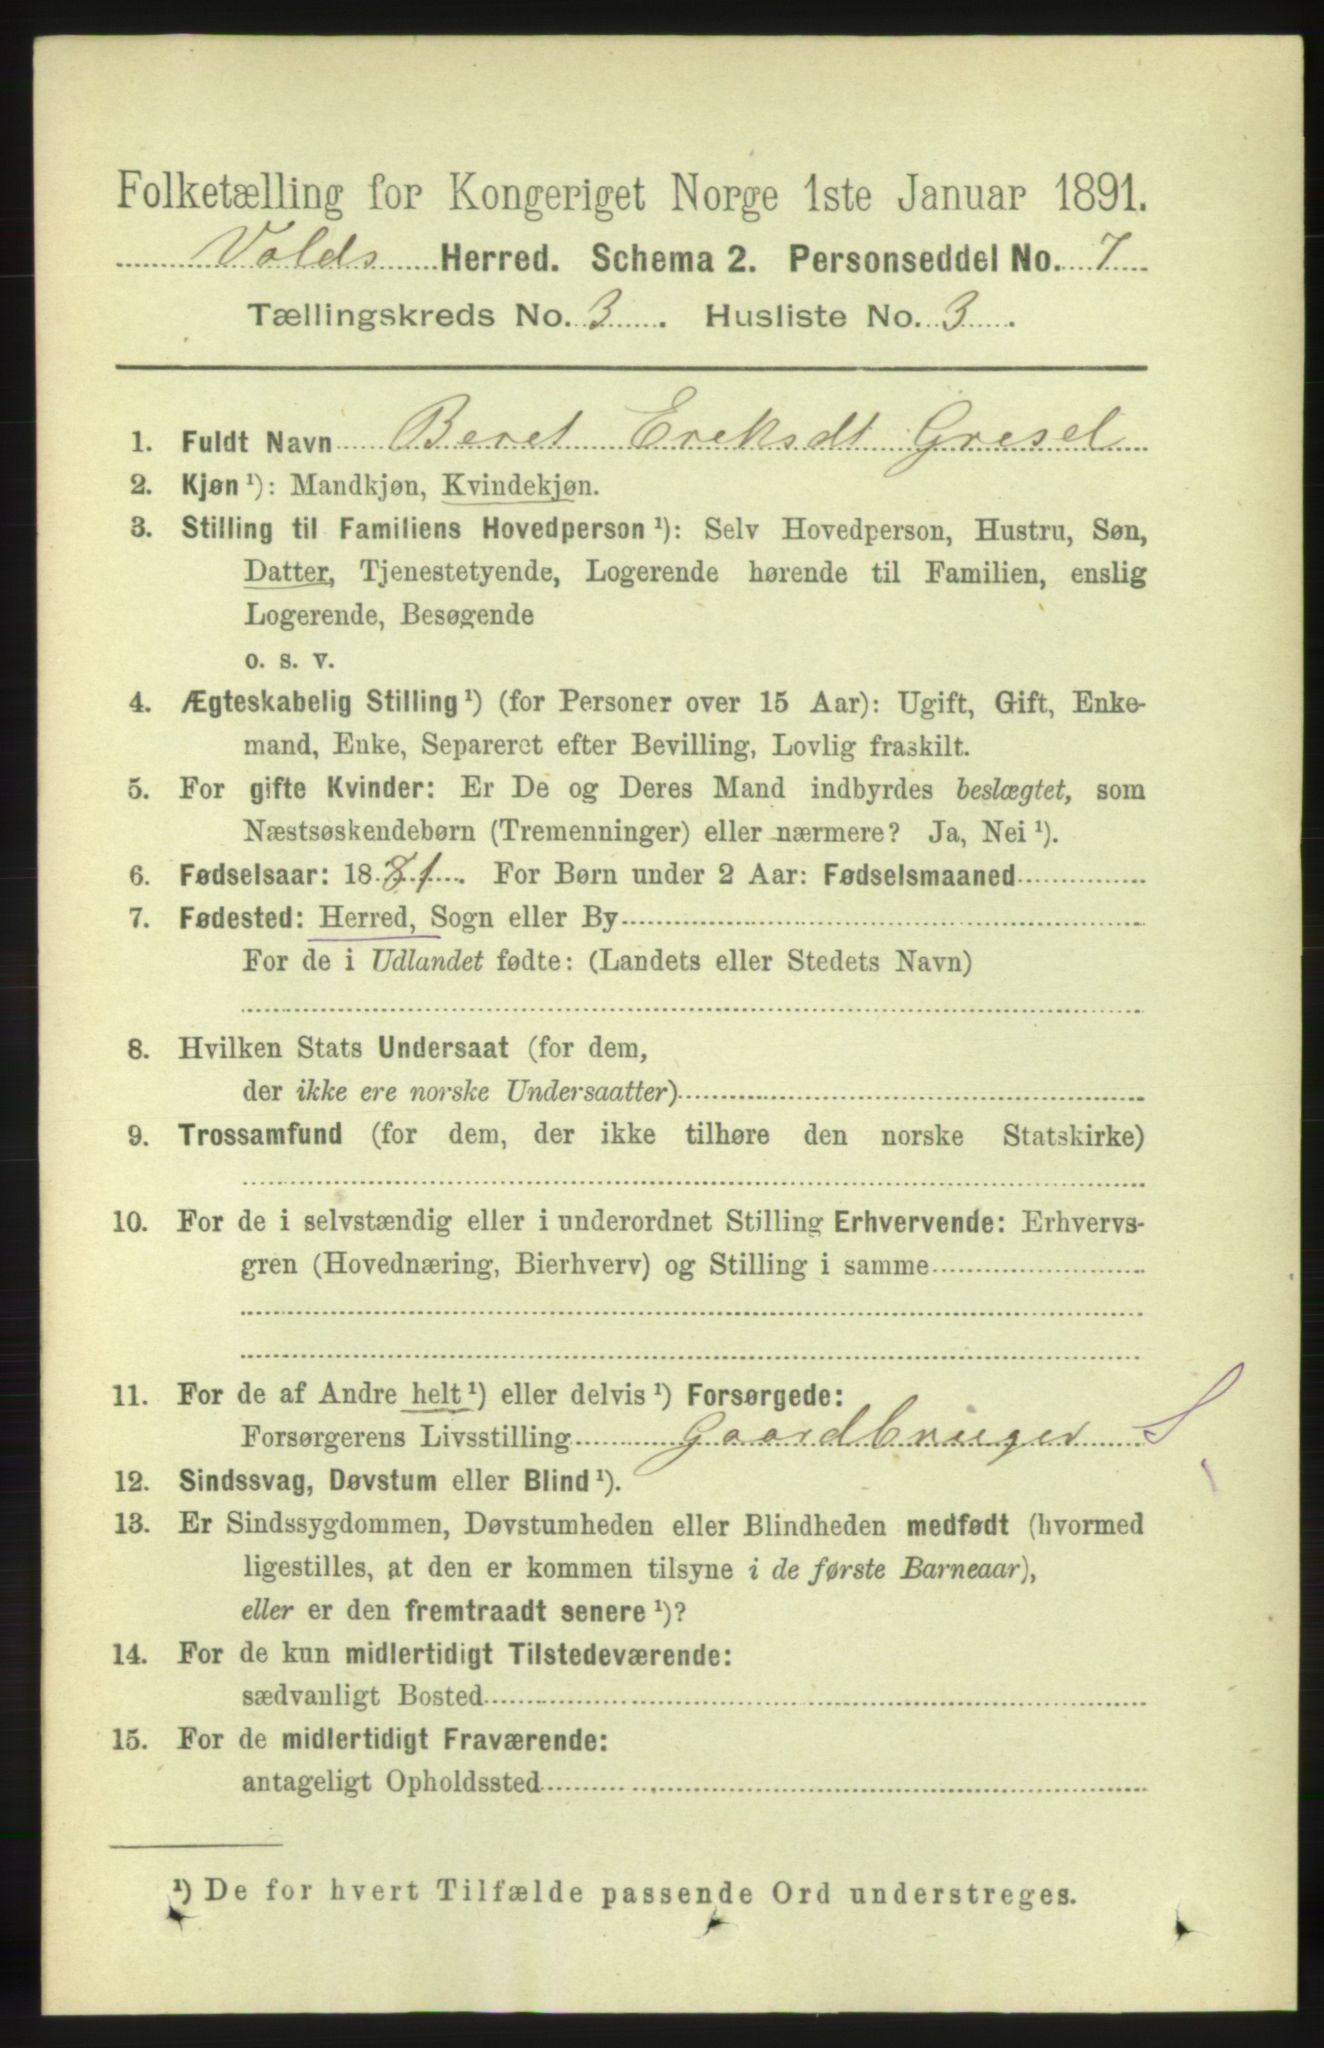 Folketælling for Kongeriget Norge 1ste Januar 1891.
Volds Herred. Schema 2. Personseddel No. 7
Tællingskreds No. 3. Husliste No. 3.
1. Fuldt Navn Beret Ereksdt Gresel
2. Kjøn ¹): Mandkjøn, Kvindekjøn.
3. Stilling til Familiens Hovedperson ¹): Selv Hovedperson, Hustru, Søn,
Datter, Tjenestetyende, Logerende hørende til Familien, enslig
Logerende, Besøgende
o. s. v.
4. Ægteskabelig Stilling ¹) (for Personer over 15 Aar): Ugift, Gift, Enke-
mand, Enke, Separeret efter Bevilling, Lovlig fraskilt.
5. For gifte Kvinder: Er De og Deres Mand indbyrdes beslægtet, som
Næstsøskendebørn (Tremenninger) eller nærmere? Ja, Nei ¹).
6. Fødselsaar: 1881. For Børn under 2 Aar: Fødselsmaaned
7. Fødested: Herred, Sogn eller By
For de i Udlandet fødte: (Landets eller Stedets Navn)
8. Hvilken Stats Undersaat (for dem,
der ikke ere norske Undersaatter)
9. Trossamfund (for dem, der ikke tilhøre den norske Statskirke)
10. For de i selvstændig eller i underordnet Stilling Erhvervende: Erhvervs-
gren (Hovednæring, Bierhverv) og Stilling i samme
11. For de af Andre helt ¹) eller delvis ¹) Forsørgede:
Forsørgerens Livsstilling Gaardbruger S
12. Sindssvag, Døvstum eller Blind ¹).
13. Er Sindssygdommen, Døvstumheden eller Blindheden medfødt (hvormed
ligestilles, at den er kommen tilsyne i de første Barneaar),
eller er den fremtraadt senere ¹)?
14. For de kun midlertidigt Tilstedeværende:
sædvanligt Bosted
15. For de midlertidigt Fraværende:
antageligt Opholdssted
¹) De for hvert Tilfælde passende Ord understreges.